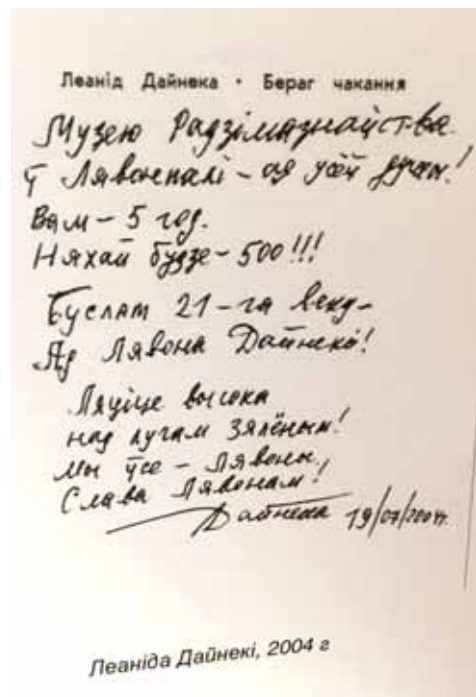 Леанід Дайнека • Бераг чакання
Музею Радзімазнаўства
ў Лявонпалі – ад усёй душы!
Вам – 5 год.
Няхай будзе – 500!!!
Буслам 21-га веку –
Ад Лявона Дайнекі!
Ляціце высока
над лугам зялёным!
Мы ўсе – Лявоны.
Слава Лявонам!
Дайнека 19/07/2004г.
Леаніда Дайнекі, 2004 г